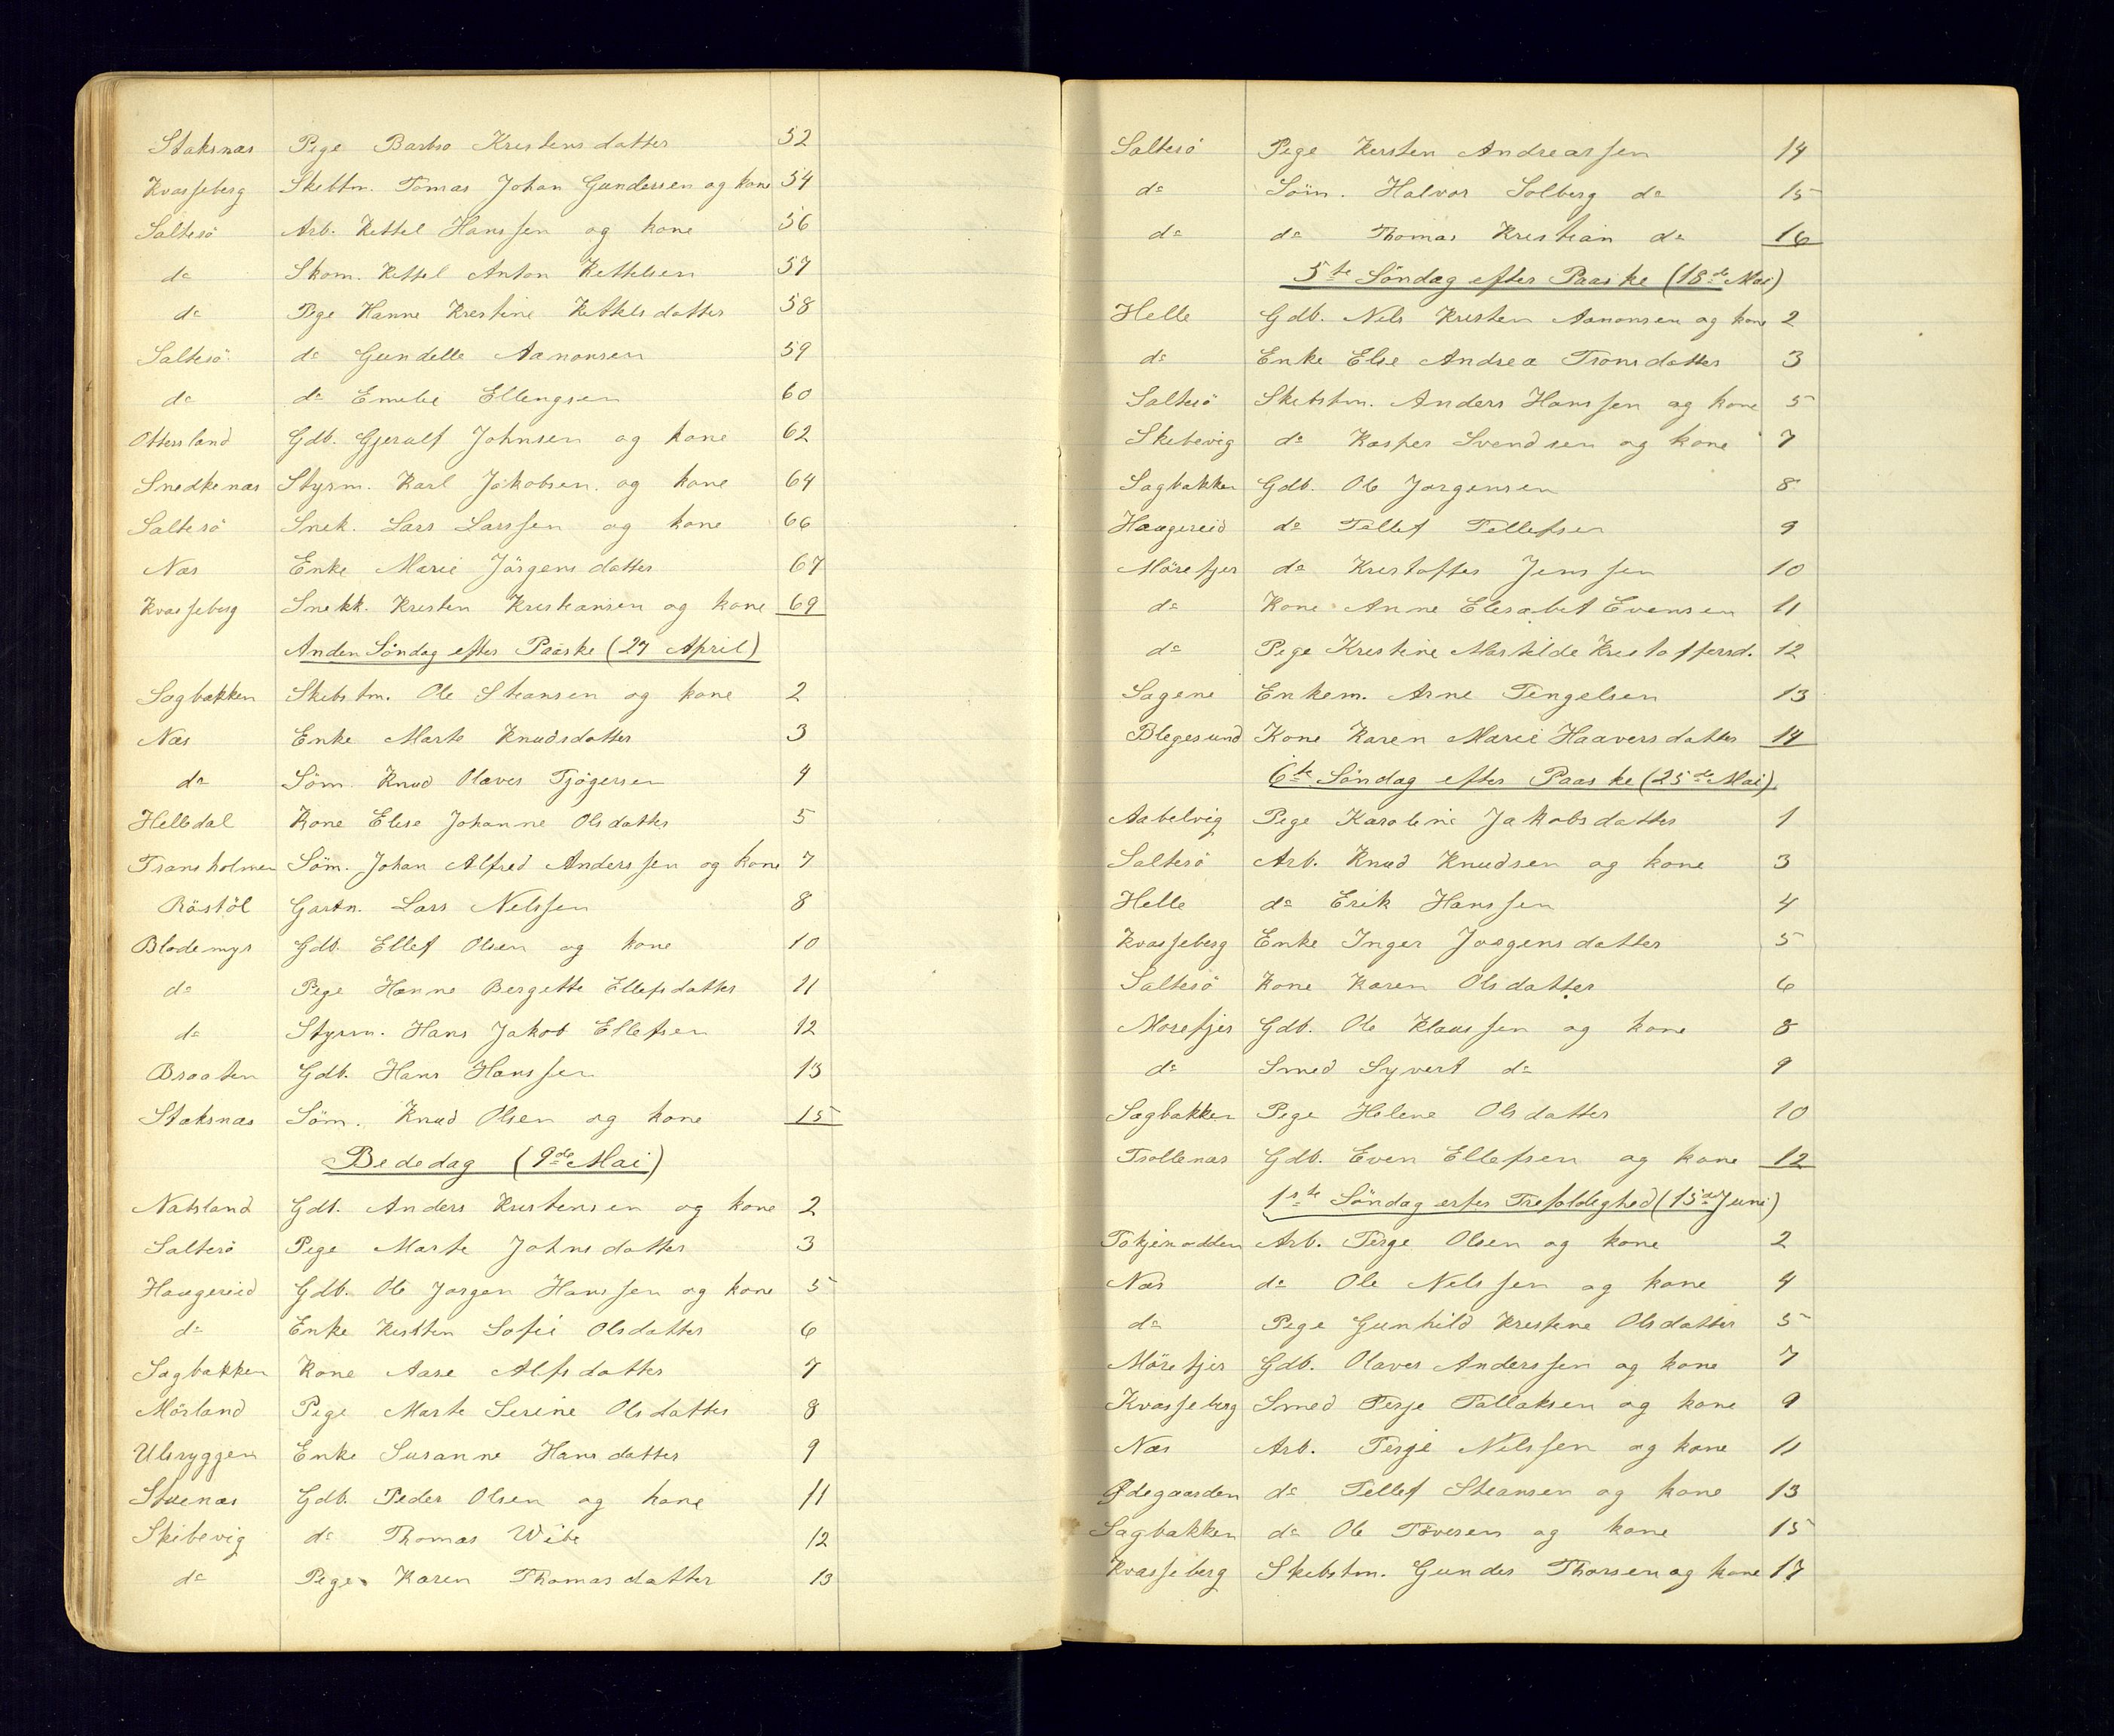 Staksnæs Pige Barbro Kristensdatter 52
Kvasseberg Skibtm. Tomas Johan Gundersen og kone 54
Saltrö Arb. Kittel Hanssen og kone 56
do Skom. Kittel Anton Kittelsen 57
do Pige Hanne Kristine Kittelsdatter 58
Saltrö do Gundelle Aanonsen 59
do do Emilie Ellingsen 60
Ottersland Gdb. Gjerulf Johnsen og kone 62
Snedkenæs Styrm. Karl Jakobsen og kone 64
Saltrö Snek. Lars Larssen og kone 66
Næs Enke Marie Jörgensdatter 67
Kvasseberg Snekk. Kristen Kristiansen og kone 69
Anden Söndag efter Paaske (27 April)
Sagbakken Skibstm. Ole Stiansen og kone 2
Næs Enke Marte Knudsdatter 3
do Söm. Knud Olaves Tjögersen 4
Helledal Kone Elise Johanne Olsdatter 5
Transholmen Söm. Johan Alfred Anderssen og kone 7
Röstöl Gartn. Lars Nilssen 8
Blodemyr Gdb. Ellef Olsen og kone 10
do Pige Hanne Bergette Ellefsdatter 11
do Styrm. Hans Jakob Ellefsen 12
Braaten Gdb. Hans Hanssen 13
Staksnæs Söm. Knud Olsen og kone 15
Bededag (9de Mai)
Natsland Gdb. Anders Kristensen og kone 2
Saltrö Pige Marte Johnsdatter 3
Haugereid Gdb. Ole Jörgen Hanssen og kone 5
do Enke Kirsten Sofie Olsdatter 6
Sagbakken Kone Aase Alfsdatter 7
Mörland Pige Marte Serine Olsdatter 8
Ulsryggen Enke Susanne Hansdatter 9
Stuenæs Gdb. Peder Olsen og kone 11
Skibevig do Thomas Wibe 12
do Pige Karen Thomasdatter 13
Saltrö Pige Kirsten Andreassen 14
do Söm. Halvor Solberg do 15
do do Thomas Kristian do 16
5te Söndag efter Paaske (18de Mai)
Helle Gdb. Nils Kristen Aanonsen og kone 2
do Enke Else Andrea Tronsdatter 3
Saltrö Skibstm. Anders Hanssen og kone 5
Skibevig do Kasper Svendsen og kone 7
Sagbakken Gdb. Ole Jørgensen 8
Haugereid do Tellef Tellefsen 9
Mörefjer do Kristoffer Jenssen 10
do Kone Anne Elisabet Evensen 11
do Pige Kristine Martilde Kristoffersd. 12
Sagene Enkem. Arne Tengelsen 13
Blegesund Kone Karen Marie Haaversdatter 14
6te Söndag efter Paaske (25de Mai)
Aabelvig Pige Karoline Jakobsdatter 1
Saltrö Arb. Knud Knudsen og kone 3
Helle do Erik Hanssen 4
Kvasseberg Enke Inger Jørgensdatter 5
Saltrö Kone Karen Olsdatter 6
Mörefjer Gdb. Ole Klaussen og kone 8
do Smed Syvert do 9
Sagbakken Pige Helene Olsdatter 10
Trollenæs Gdb. Even Ellefsen og kone 12
1ste Söndag efter Trefoldighed (15de Juni)
Tokjenodden Arb. Terge Olsen og kone 2
Næs do Ole Nilssen og kone 4
do Pige Gunhild Kristine Olsdatter 5
Mörefjer Gdb. Olaves Anderssen og kone 7
Kvasseberg Smed Terje Tallaksen og kone 9
Næs Arb. Terje Nilssen og kone 11
Ødegaarden do Tellef Stiansen og kone 13
Sagbakken do Ole Toversen og kone 15
Kvasseberg Skibstm. Gunder Thorsen og kone 17